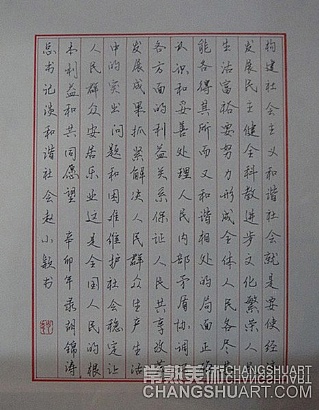 构建社会主义和谐社会就是要使经
发展民主健全科教进步文化繁荣人
生活富裕要努力形成全体人民各尽
能各得其所而又和谐相处的局面正
认识和妥善处理人民内部矛盾协调
各方面的利益关系保证人民共享改
发展成果抓紧解决人民群众生产生活
中的突出问题和困难维护社会稳定让
人民群众安居乐业这是全国人民的根
本利益和共同愿望 辛卯年录胡锦涛
总书记谈和谐社会赵小书
常熟美术CHANGSHUART